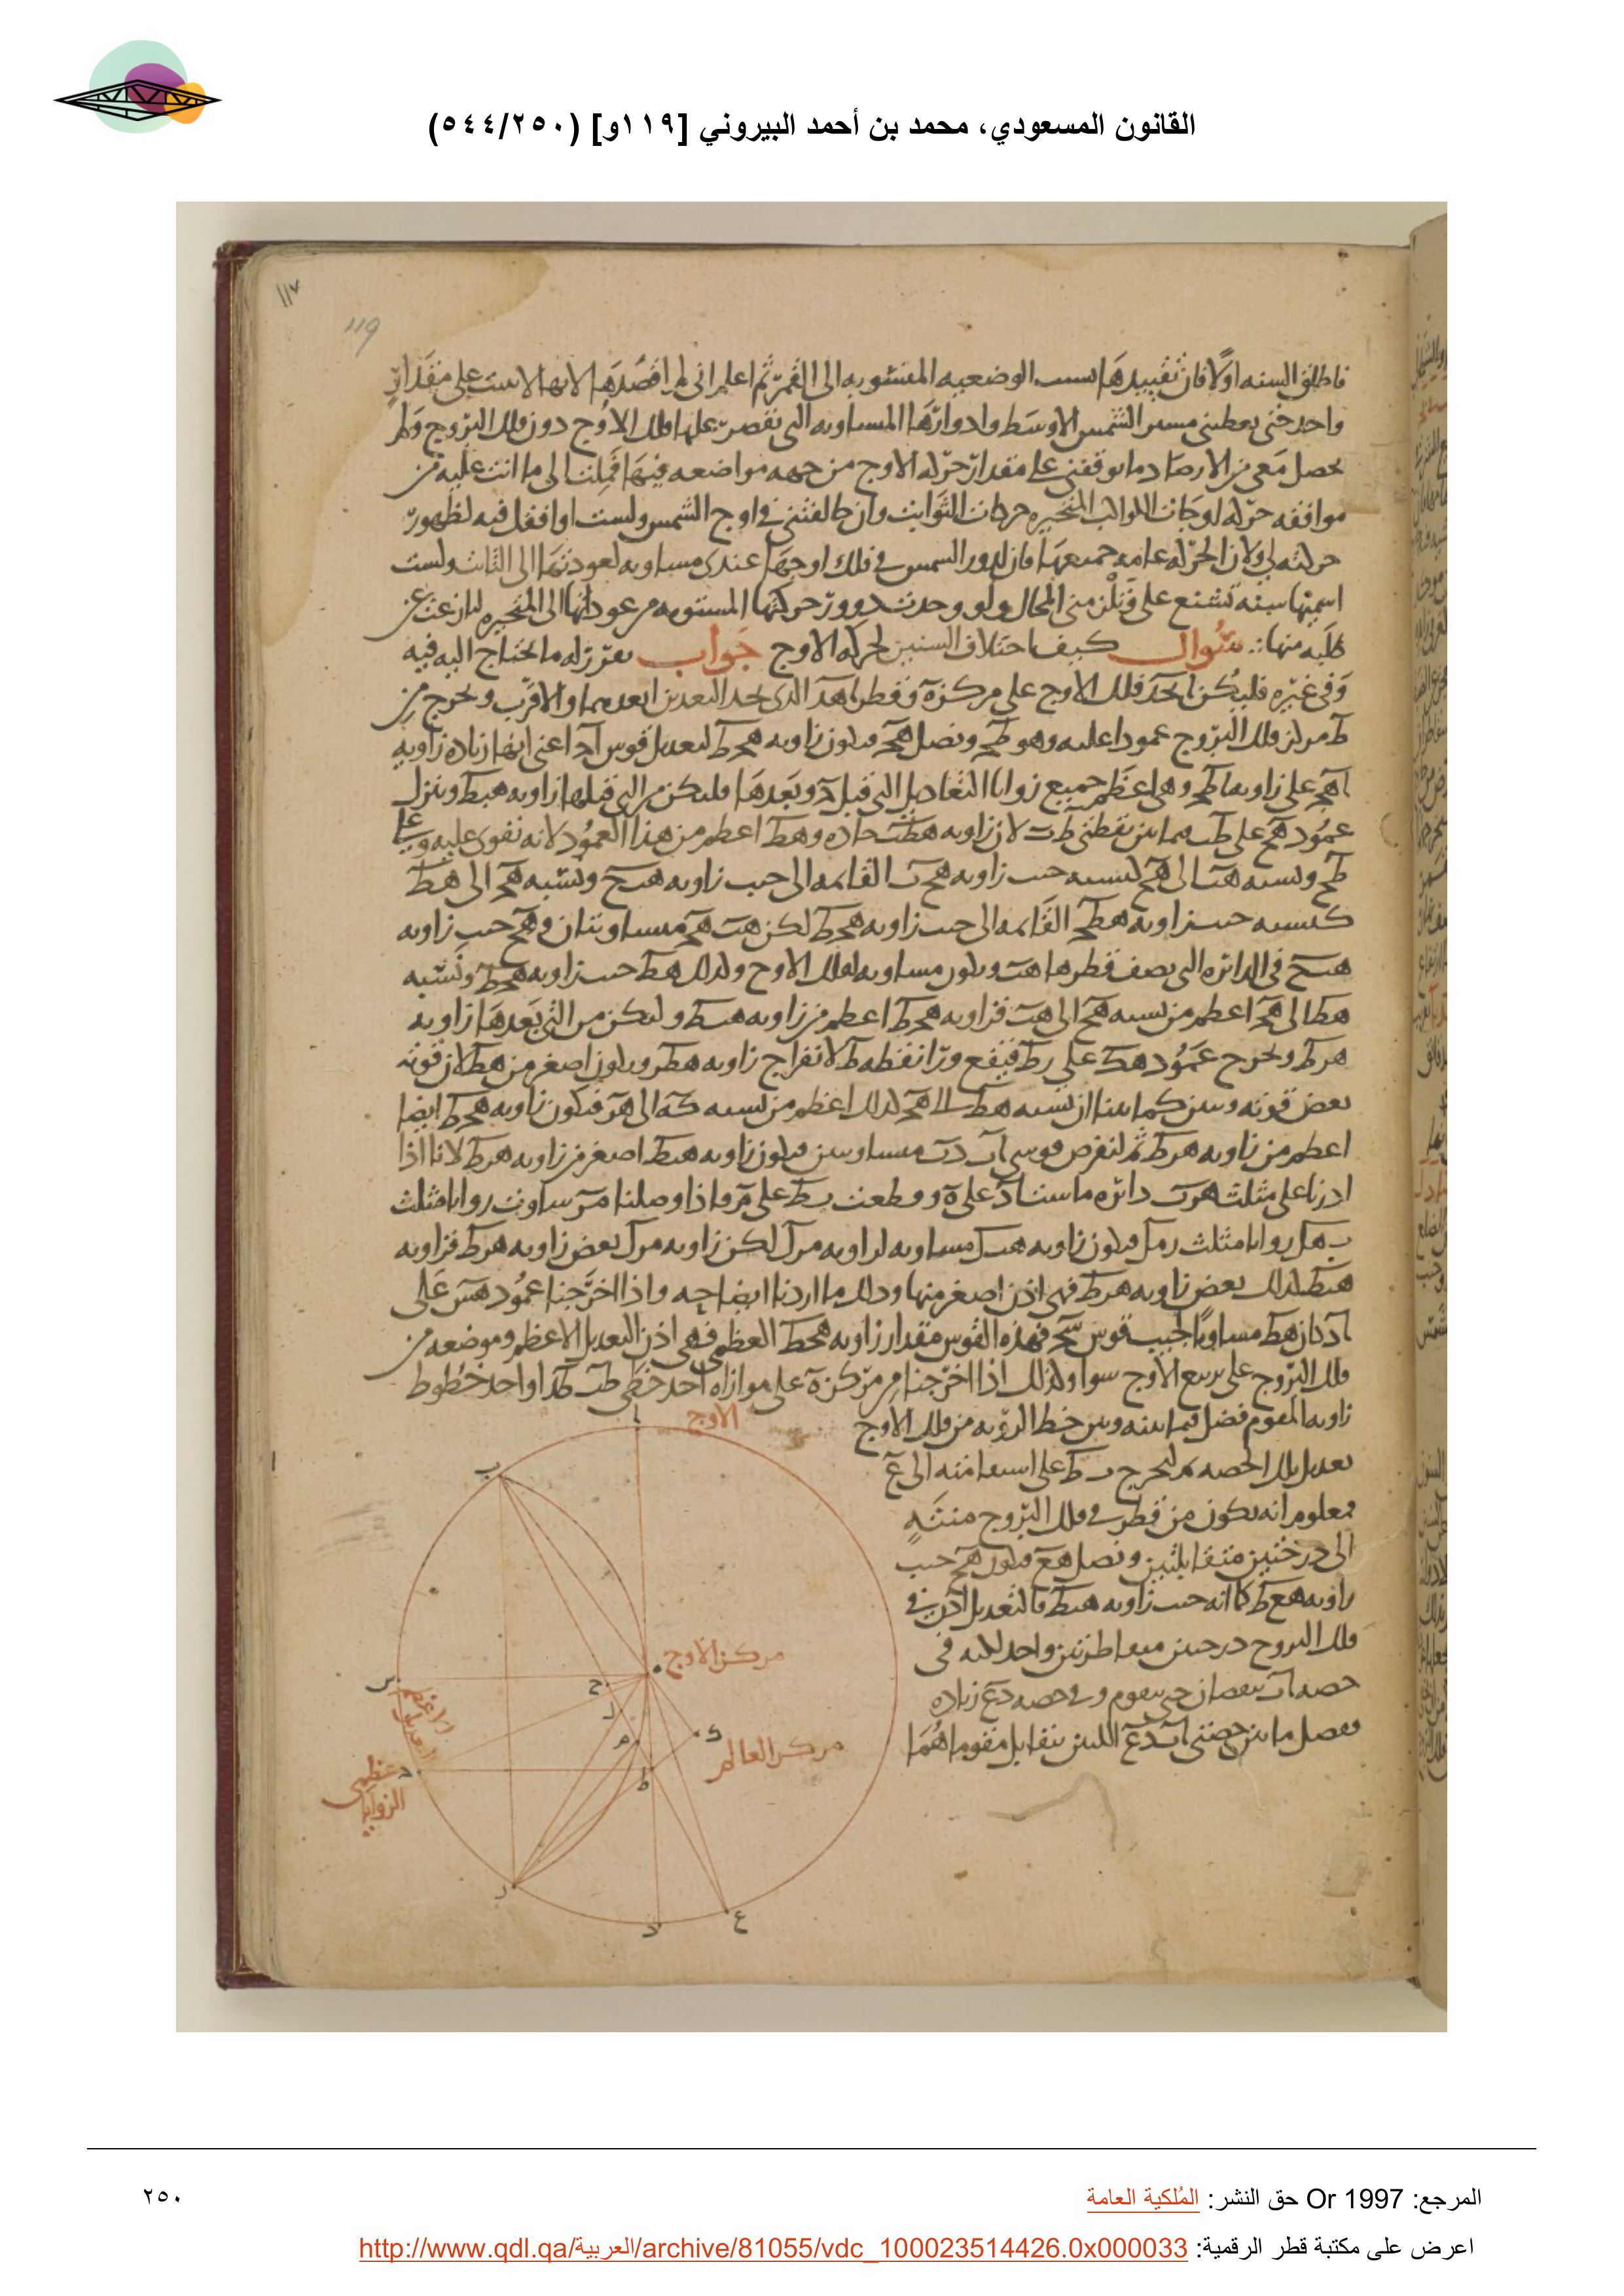 القانون المسعودي، محمد بن أحمد البيروني [١١٩و] (٥٤٤/٢٥٠)
١١٧
119
فاطلق السنه اولا فان تقييدها بسبب الوضعيه المنسوبه الى القمر ثم اعلم انى لم اقصدها لانها لاست على مقدار
واحد حتى يعطينى مسير الشمس الاوسط وادوارها المساويه التى تقصر عليها فلك الاوج دون فلك البروج ولم
يحصل معى من الارصاد ما يوقفنى على مقدار حركه الاوج من جهه مواضعه فيها فملت الى ما انت عليه من
موافقه حركه اوجات الكواكب المتحيره حركات الثوابت وان خالفتنى فى اوج الشمس ولست اوافقك فيه لظهور
حركته لى ولان الحركه عامه جميعها فان لدور الشمس فى فلك اوجها عندى مساويه لعودتها الى الثابت ولست
اسميها سنه
طلبه منها سؤال كيف اختلاف السنين لحركه الاوج جواب نقرر له ما يحتاج اليه فيه
وفى غيره فليكن ابحد فلك الاوج على مركز ه وقطر اهد الذى يحد البعدين ابعدهما والاقرب ويخرج من
ط مركز فلك البروج عمودا عليه وهو طح ونصل هح فيكون زاويه هحط لتعديل قوس اح اعنى انها زياده زاويه
اهح على زاويه اطح وهى اعظم جميع زوايا التعاديل التى قبل ح وبعدها وليكن من التى قبلها زاويه هبط وننزل
عمود هح على طب فيما بين نقطتى ط ب لان زاويه هطب حاده وهط اعظم من هذا العمود لانه يقوى عليه وعلى
طح ونسبه هب الى هح كنسبه جيب زاويه هحب القائمه الى جيب زاويه هبح ونسبه هح الى هط
كنسبه جيب زاويه هطح القائمه الى جيب زاويه هحط لكن هب هح متساويتان و هح جيب زاويه
هبح فى الدائره التى نصف قطرها هب ويكون مساويه لفلك الاوج وكذلك هط جيب زاويه هحط ونسبه
هط الى هح اعظم من نسبه هح الى هب فزاويه هحط اعظم من زاويه هبط وليكن من التى بعدها زاويه
هرط ويخرج عمود هك على رط فيقع ورا نقطه ط لانفراج زاويه هطر ويكون اصغر من هط لان قوته
بعض قوته وتبين كما بينا ان نسبه هط الى هح كذلك اعظم من نسبه كه الى هر فيكون زاويه هحط ايضا
اعظم من زاويه هرط ثم لنفرض قوسى اب در متساويتين فيكون زاويه هبط اصغر من زاويه هرط لانا اذا
ادرنا على مثلث هرب دائره ماست اد على ه وقطعت بط على م واذا وصلنا مر ساوت زوايا مثلث
بهل زوايا مثلث رمل فيكون زاويه هبل مساويه لزاويه مرل لكن زاويه مرل بعض زاويه هرط فزاويه
هبط كذلك بعض زاويه هرط فهى اذن اصغر منها وذلك ما اردنا ايضاحه واذا اخرجنا عمود هس على
اد كان هط مساويا لجيب قوس سح فهذه القوس مقدار زاويه هحط العظمى فهى اذن التعديل الاعظم وموضعه من
فلك البروج على تربيع الاوج سوا ولذلك اذا اخرجنا من مركز ه على موازاه احد خطى طب طد او احد خطوط
زاويه المقوم فصل فيما بينه وبين خط الرؤيه من فلك الاوج
تعديل تلك الحصه ثم لنخرج بط على استقامته الى ع
فمعلوم انه يكون من قطر فى فلك البروج منتهٍ
الى درجتين متقابلتين ونصل هع فيكون هح جيب
زاويه ههع ط كما انه جيب زاويه هبط فالتعديل اذن فى
فلك البروج درجتين متناظرتين واحد لكنه فى
حصه اب نقصان حتى يقوم وفى حصه دع زياده
وفصل ما بين حصتى اب دع اللتين يتقابل مقوماهما
الاوج
ا
ب
مركز الاوج
ه
س
ح
ل
م
ك
ط
مركز العالم
التعديل الاعظم
عظمى الزوايا
ح
ر
د
ع
المرجع: Or 1997 حق النشر: المُلكية العامة
٢٥٠
اعرض على مكتبة قطر الرقمية: http://www.qdl.qa/العربية/archive/81055/vdc_100023514426.0x000033